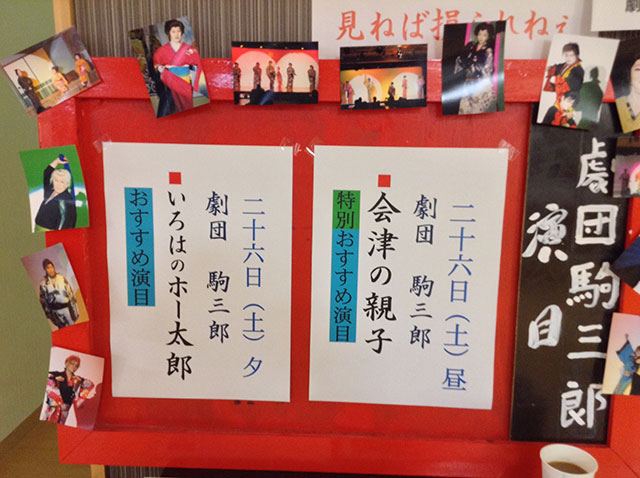 見ねば損られねぇ
劇団駒三郎
演目
二十六日(土)昼
劇団 駒三郎
■会津の親子
特別おすすめ演目
二十六日(土)夕
劇団 駒三郎
■いろはのホー太郎
おすすめ演目